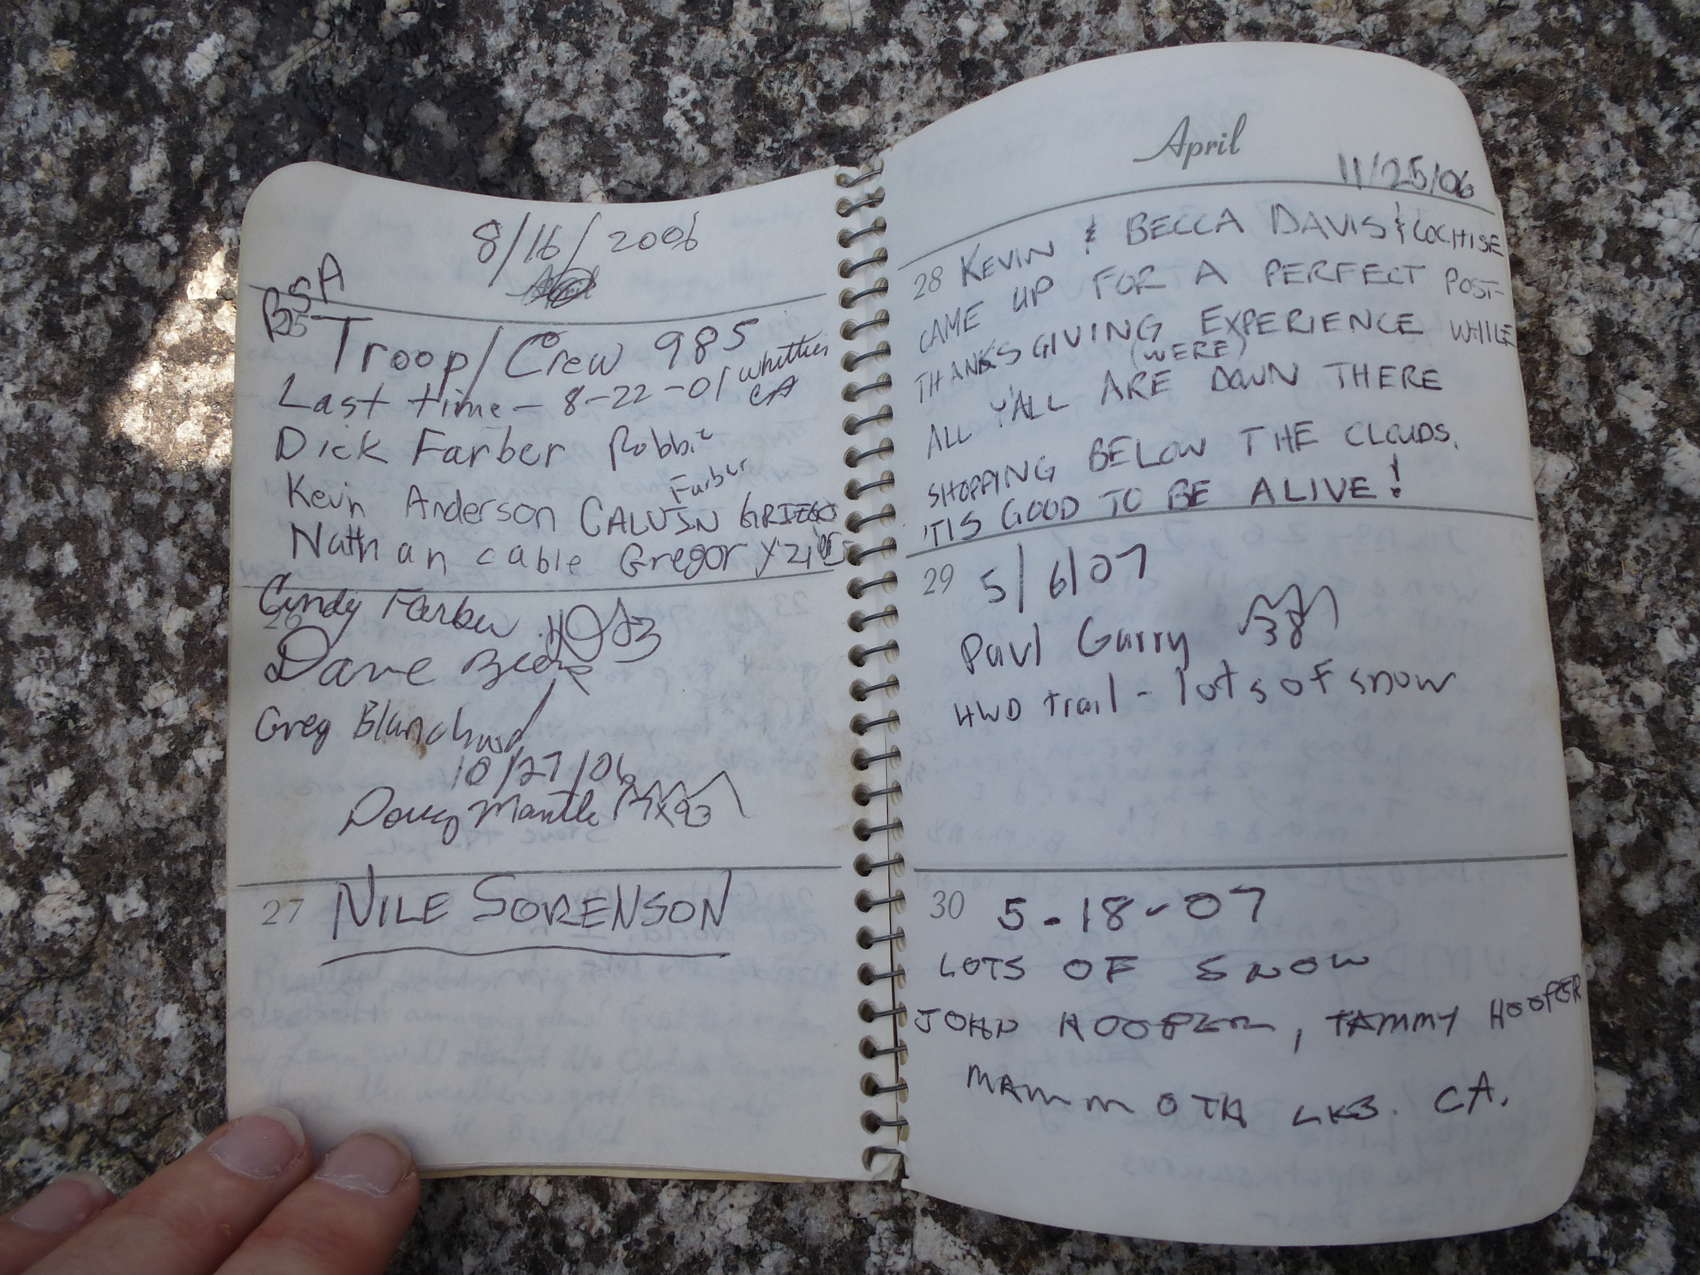 8/16/2006
BSA
Troop/Crew 985
Last time - 8-22-01 Whittier CA
Dick Farber Robbie Farber
Kevin Anderson CALVIN GRIEGO
Nathan cable Gregory
Cindy Farber
Dave
Greg Blanchard
10/27/06
Doug Mantle 93
27 NILE SORENSON
April
11/25/06
28 KEVIN & BECCA DAVIS & COCHISE
CAME UP FOR A PERFECT POST-
THANKSGIVING EXPERIENCE WHILE
(WERE)
ALL Y'ALL ARE DOWN THERE
SHOPPING BELOW THE CLOUDS.
'TIS GOOD TO BE ALIVE!
29 5/6/07
Paul Garry 38
HWD trail - lots of snow
30 5-18-07
LOTS OF SNOW
JOHN HOOPER, TAMMY HOOPER
MAMMOTH LKS. CA.